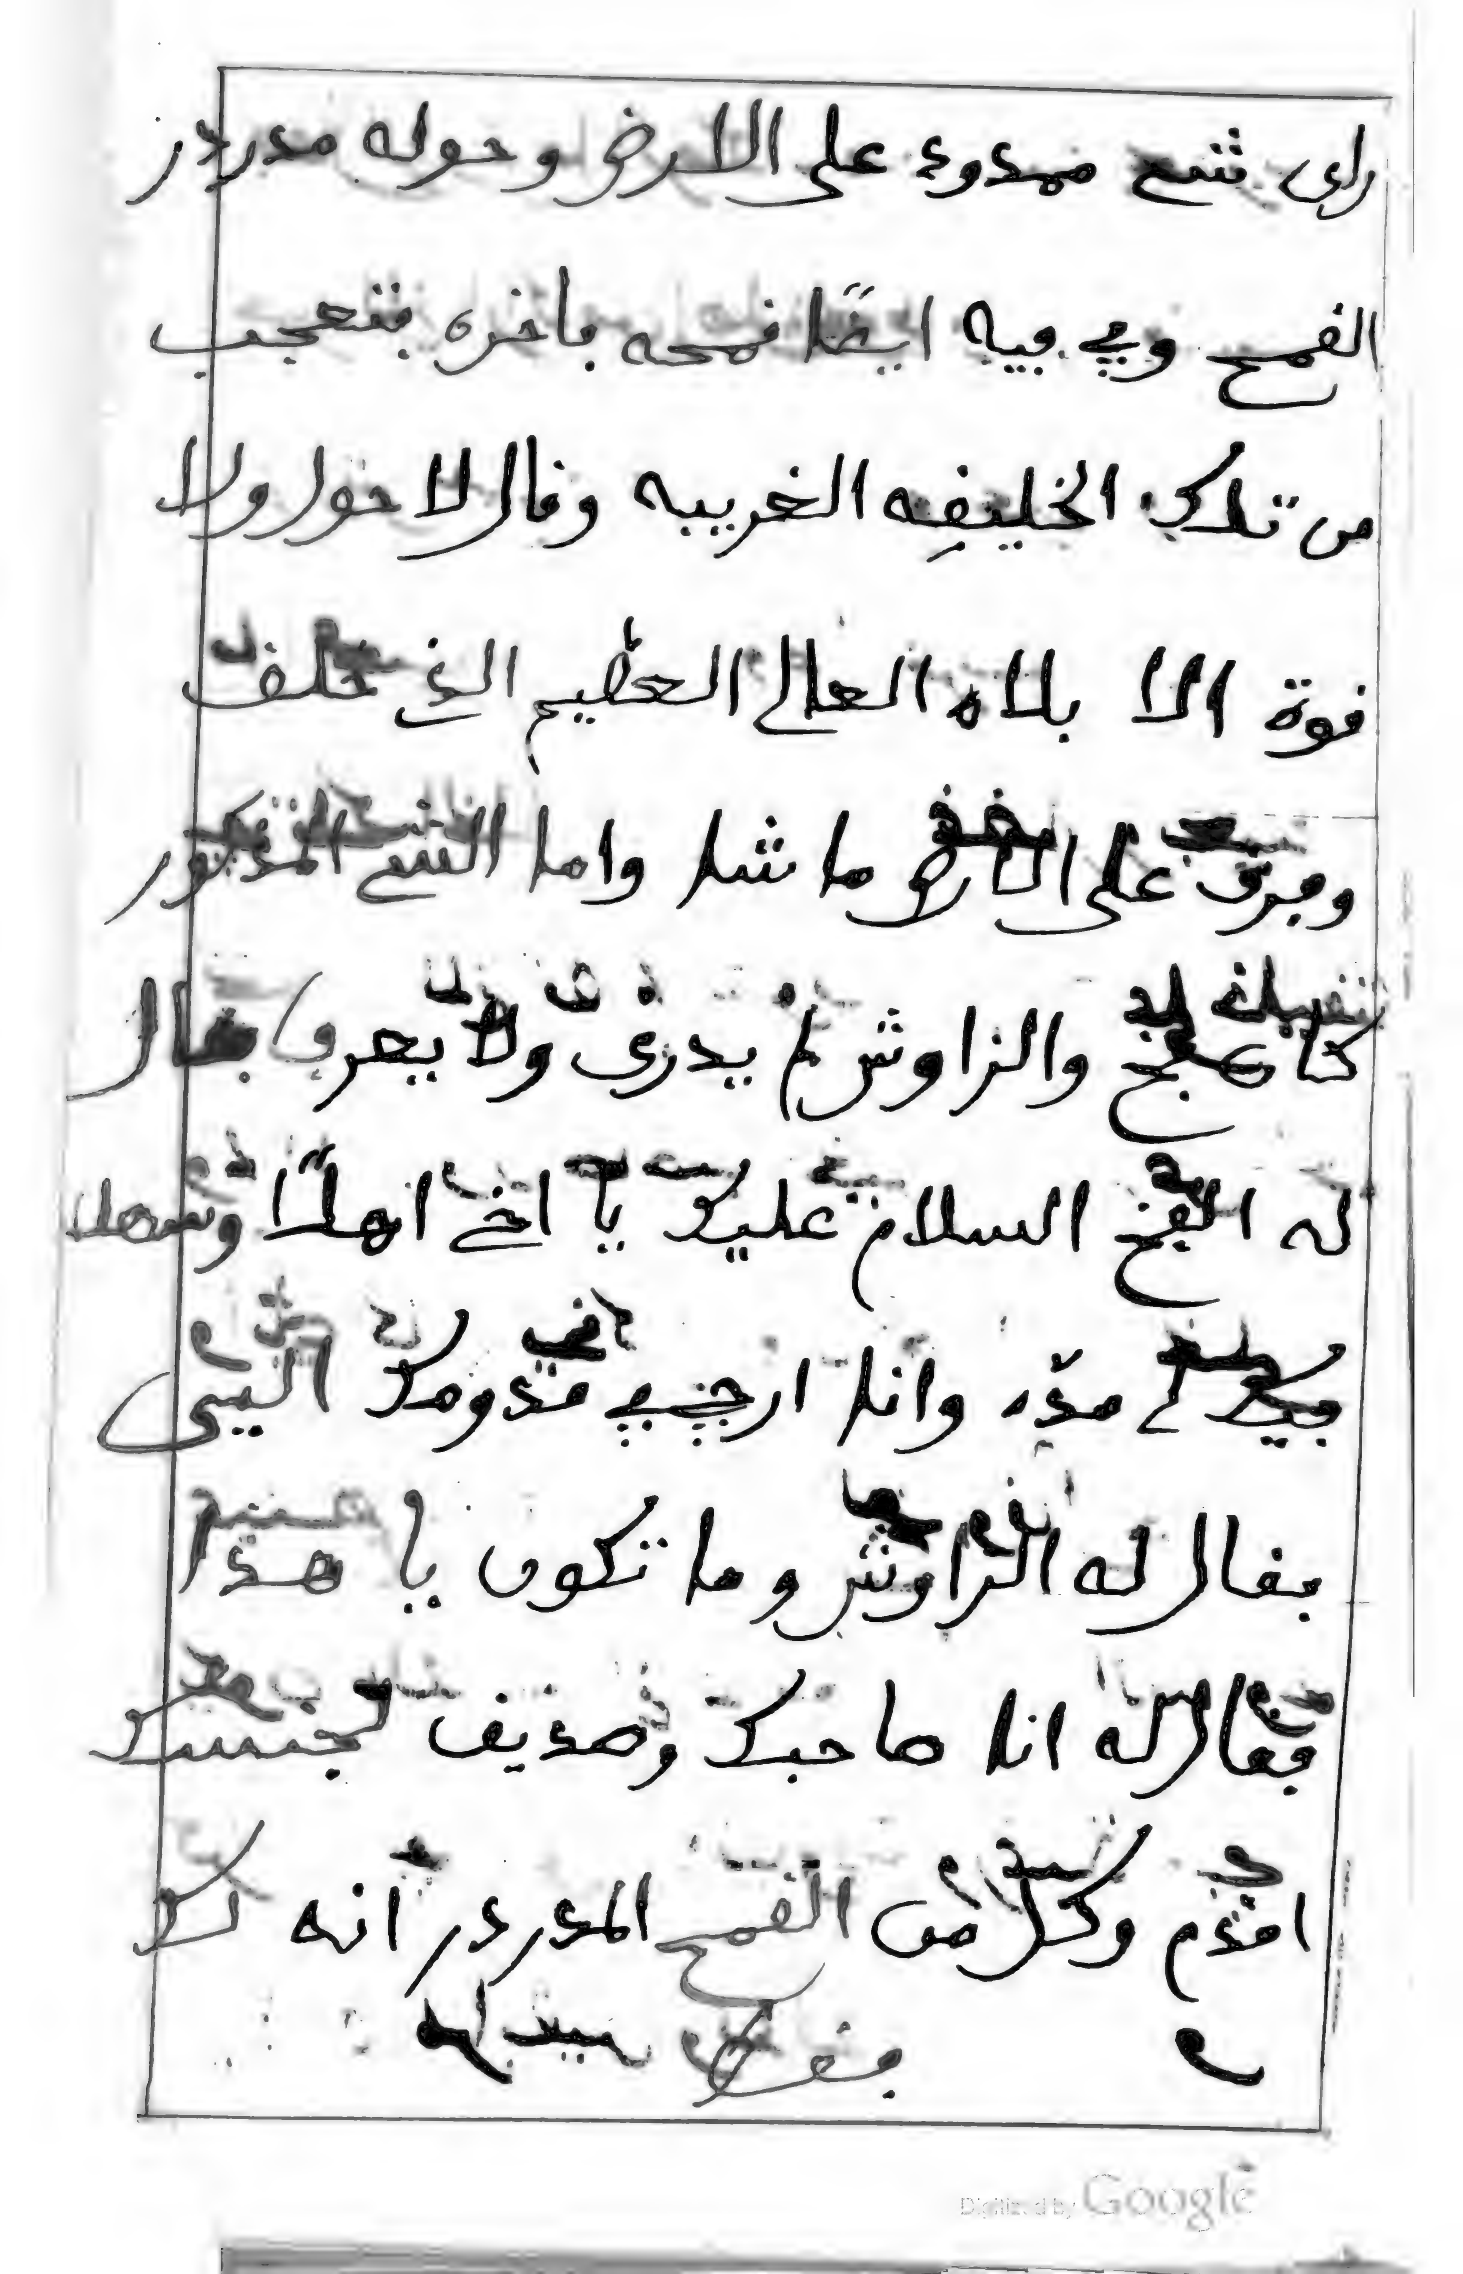 راى شيء ممدود على الارض وحوله مدردر
القمح وفي فيه ايضًا قمحه باخره فتعجب
من تلك الخليفه الغريبه وقال لا حول ولا
قوة الا بلاه العالي العظيم الذي خلف
وفرق على الارض ما شا واما الشي المذكور
كان فخ والزاوش لم يدرى ولا يعرف فقال
له الفخ السلام عليك يا اخي اهلًا وسهلا
فيك لي مده وانا ارجي في قدومك اليى
فقال له الزاوش وما تكون يا هذا
فقال له انا صاحبك وصديق لجنسك
اقدم وكل من القمح المدردر انه لك
فقال
Digitized by Google